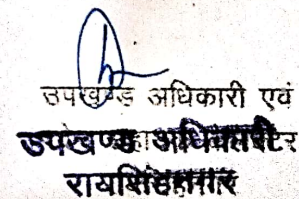 उपखण्ड अधिकारी एवं
उपखण्ड अधिकारी
रायसिंहनगर